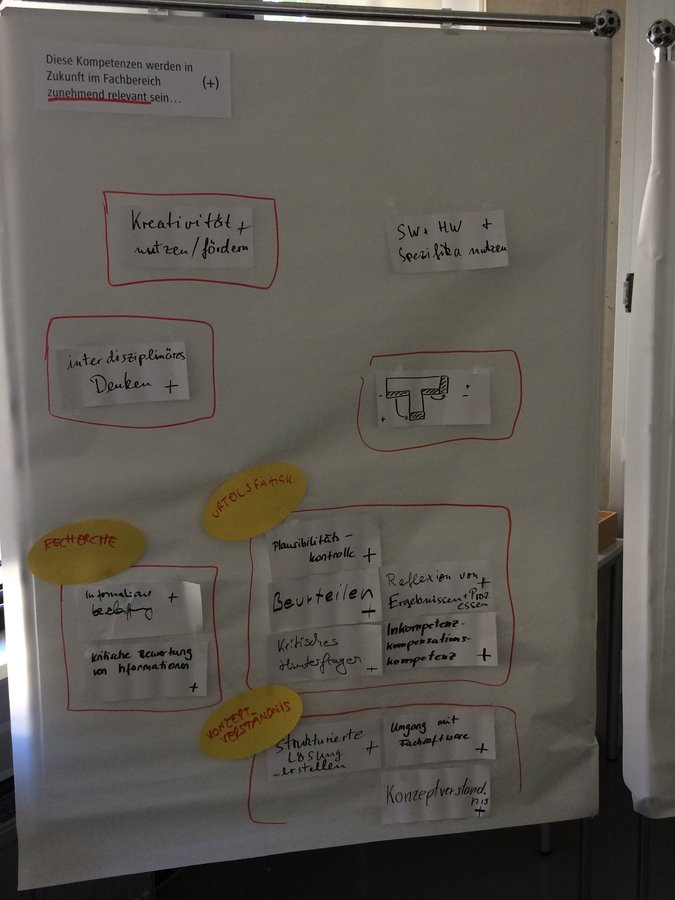 Diese Kompetenzen werden in
Zukunft im Fachbereich
zunehmend relevant sein...
(+)
Kreativität +
nutzen/fördern
SW + HW +
Spezifika nutzen
interdisziplinäres
Denken +
+
-
-
+
URTEILSFÄHIGK.
RECHERCHE
Plausibilitäts-
kontrolle +
Beurteilen
+
Kritisches
Hinterfragen +
Reflexion von +
Ergebnissen + Proz
essen
Inkompetenz-
kompensations-
kompetenz +
Informations +
Kritische Bewertung
von Informationen
+
KONZEPT-
VERSTÄNDNIS
Strukturierte
Lösung +
erstellen
Umgang mit
Fachsoftware
+
Konzeptverständ.
nis
+